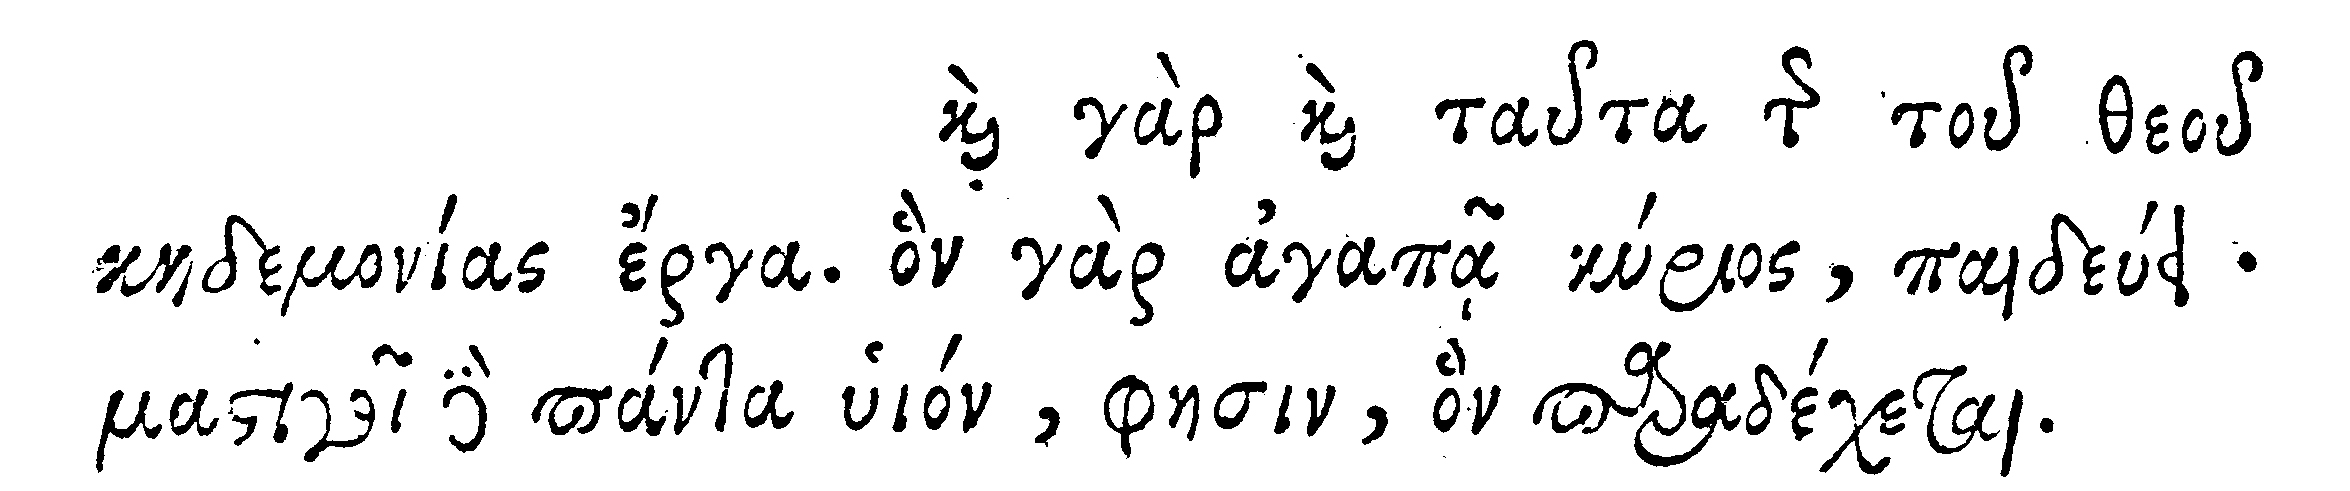 καὶ γὰρ καὶ ταῦτα τῆς τοῦ θεοῦ
κηδεμονίας ἔργα. ὃν γὰρ ἀγαπᾷ κύριος, παιδεύει.
μαστιγοῖ δὲ πάντα υἱόν, φησιν, ὃν παραδέχεται.